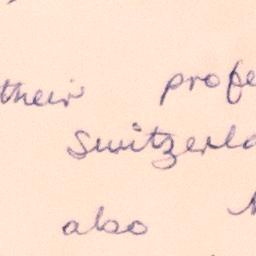 their profe
Switzerla
also